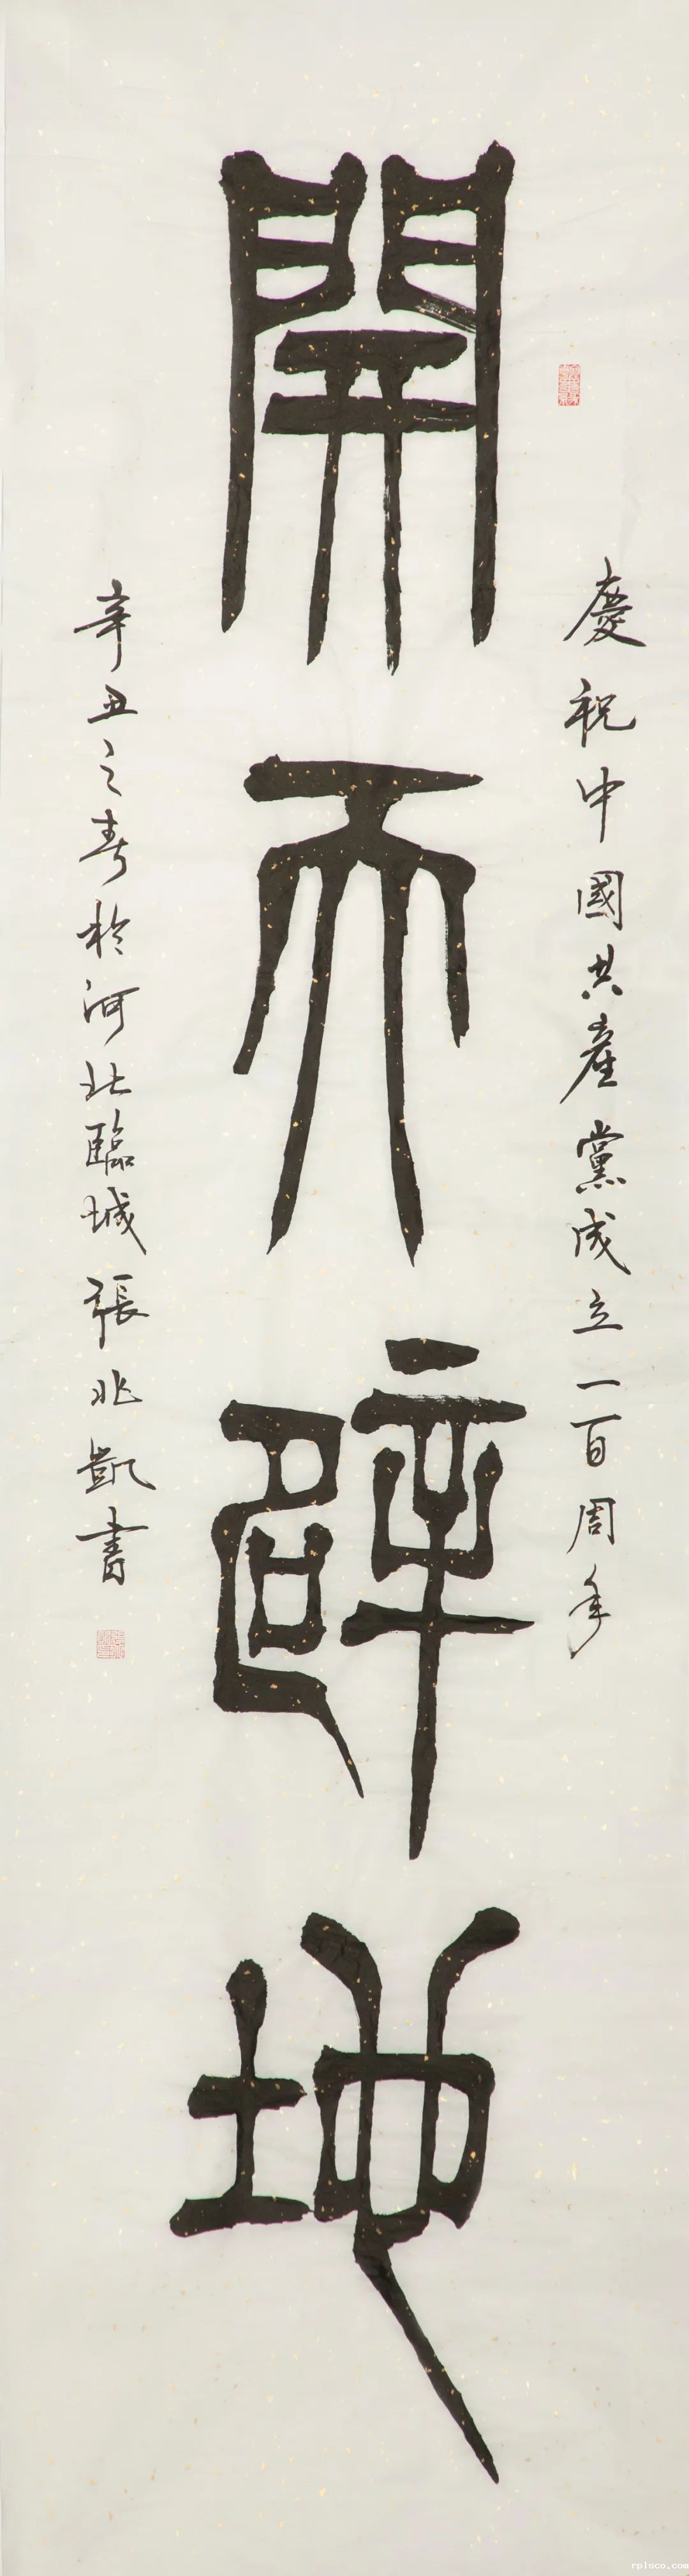 慶祝中國共產黨成立一百周年
開天辟地
辛丑之春於河北臨城張兆凱書
rplsco.com